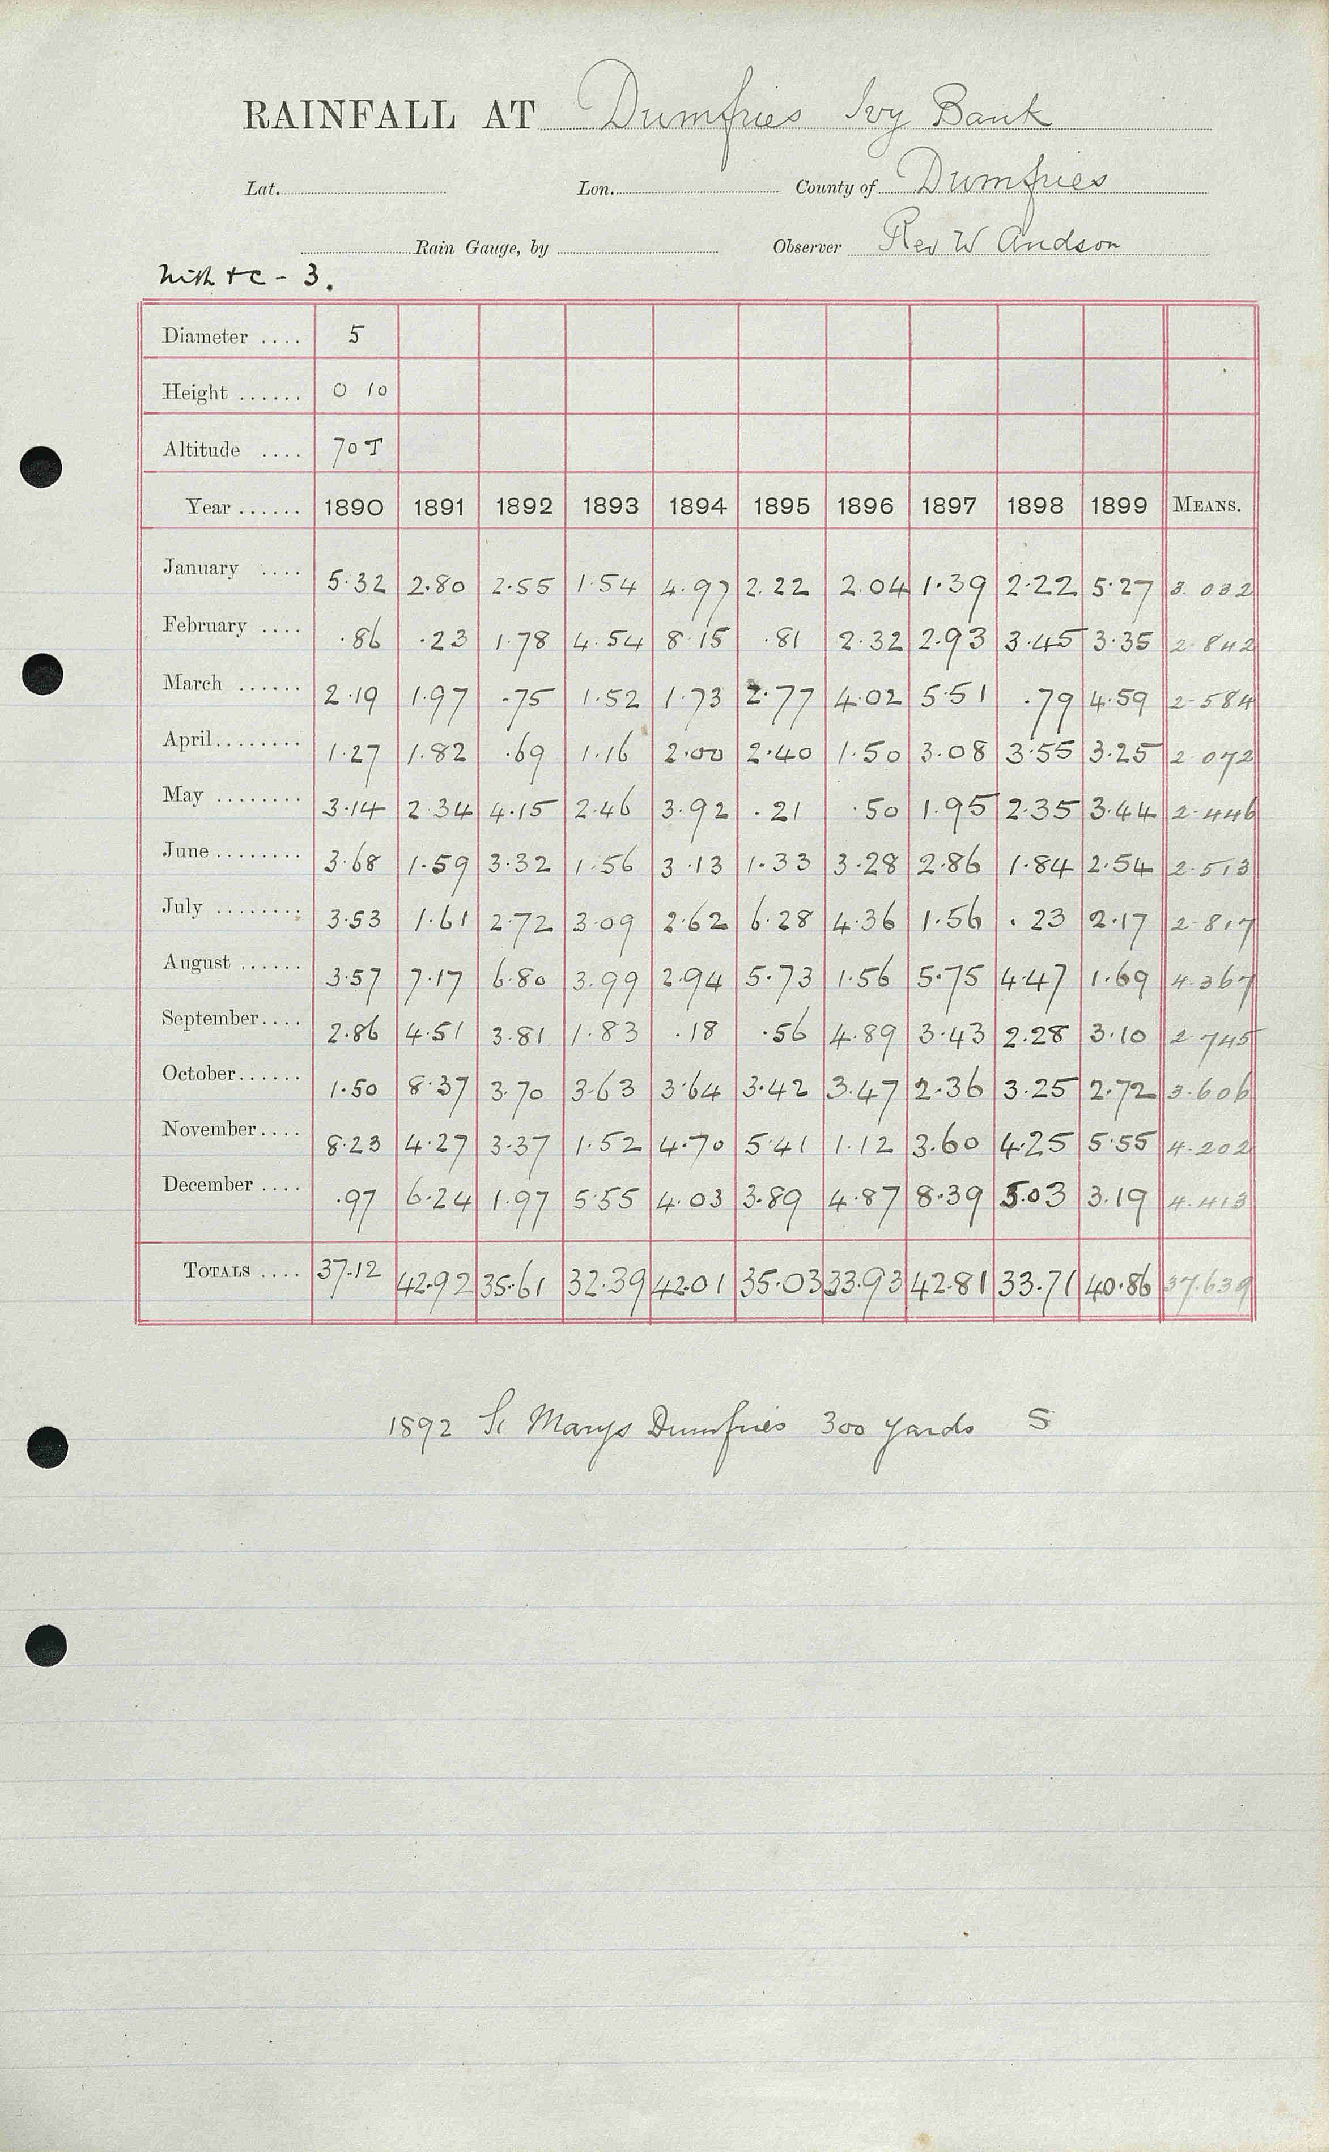 RAINFALL AT Dumfries Ivy Bank
Lat. Lon. County of Dumfries
Rain Gauge, by Observer Rev W Andson
Nith &c - 3.
Diameter .... 5
Height ...... 0 10
Altitude .... 70 T
Year ...... 1890 1891 1892 1893 1894 1895 1896 1897 1898 1899 MEANS.
January .... 5.32 2.80 2.55 1.54 4.97 2.22 2.04 1.39 2.22 5.27 3.032
February .... .86 .23 1.78 4.54 8.15 .81 2.32 2.93 3.45 3.35 2.842
March ...... 2.19 1.97 .75 1.52 1.73 2.77 4.02 5.51 .79 4.59 2.584
April........ 1.27 1.82 .69 1.16 2.00 2.40 1.50 3.08 3.55 3.25 2.072
May ........ 3.14 2.34 4.15 2.46 3.92 .21 .50 1.95 2.35 3.44 2.446
June ........ 3.68 1.59 3.32 1.56 3.13 1.33 3.28 2.86 1.84 2.54 2.513
July ........ 3.53 1.61 2.72 3.09 2.62 6.28 4.36 1.56 .23 2.17 2.817
August ...... 3.57 7.17 6.80 3.99 2.94 5.73 1.56 5.75 4.47 1.69 4.367
September.... 2.86 4.51 3.81 1.83 .18 .56 4.89 3.43 2.28 3.10 2.745
October...... 1.50 8.37 3.70 3.63 3.64 3.42 3.47 2.36 3.25 2.72 3.606
November.... 8.23 4.27 3.37 1.52 4.70 5.41 1.12 3.60 4.25 5.55 4.202
December .... .97 6.24 1.97 5.55 4.03 3.89 4.87 8.39 5.03 3.19 4.413
TOTALS .... 37.12 42.92 35.61 32.39 42.01 35.03 33.93 42.81 33.71 40.86 37.639
1892 St Marys Dumfries 300 yards S